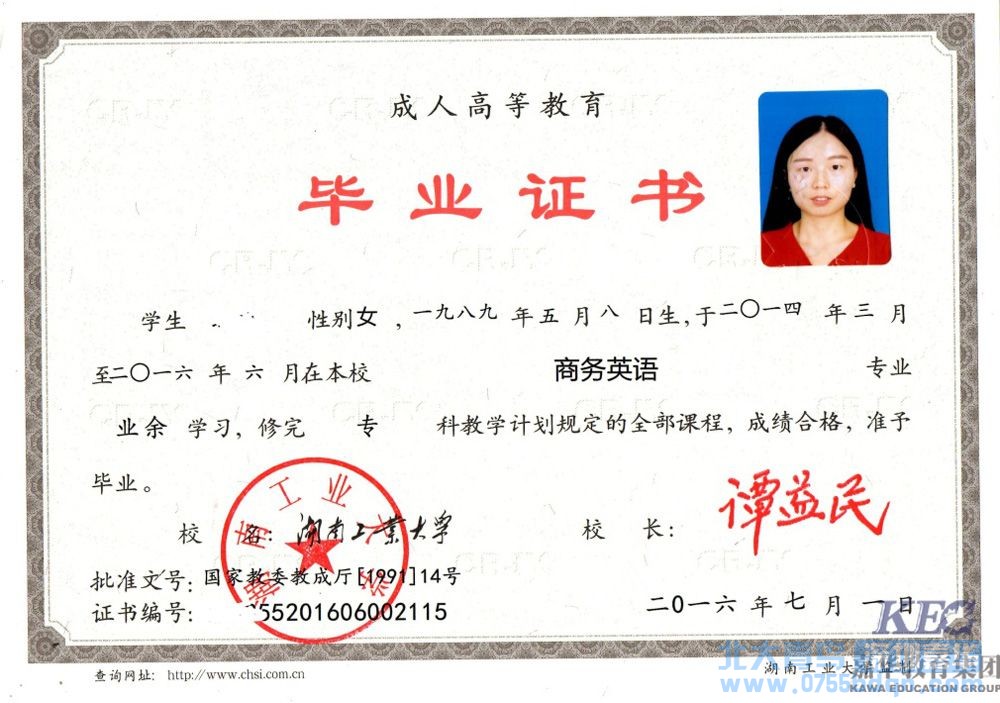 成人高等教育
毕业证书
学生 性别女，一九八九年五月八日生，于二〇一四年三月
至二〇一六年六月在本校 商务英语 专业
业余 学习，修完 专 科教学计划规定的全部课程，成绩合格，准予
毕业。
校 名：湖南工业大学 校 长：谭益民
湖南工业大学
批准文号：国家教委教成厅[1991]14号
证书编号： 55201606002115 二〇一六年七月一日
KEC
查询网址：http://www.chsi.com.cn 湖南工业大学监制
教育集团
www.0755
KAWA EDUCATION GROUP